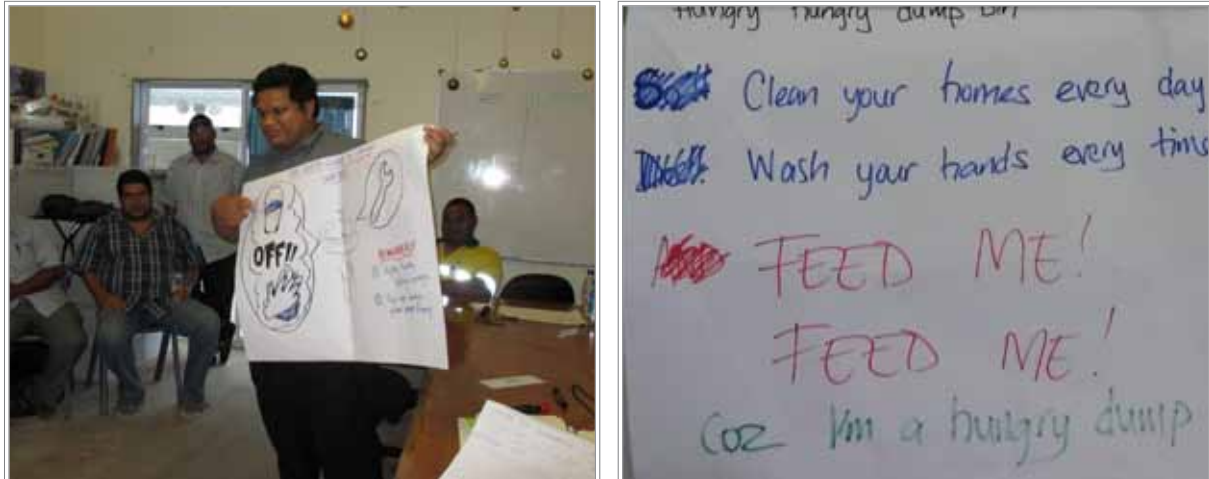 OFF!!
Hungry hungry dump bin
Clean your homes every day
Wash your hands every time
FEED ME!
FEED ME!
Coz I'm a hungry dump